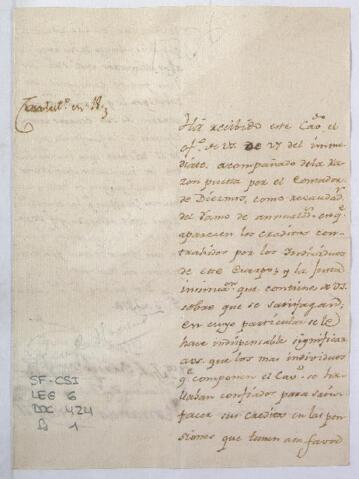 Ha recibido este Cav.º el
of.º de VS. de 27 del inme
diato, acompañado de la Ra
zon puesta por el Contador
de Diezmos, como recaudad.r
del Ramo de annualid.s en q.e
aparecen los creditos con
trahidos por los Individuos
de este Cuerpo, y la justa
insinua.n que contiene a VS.
sobre que se satisfagan;
en cuyo particular se le
hace indispensable significar
a VS. que los mas individuos
q.e componen el Cav.º se ha
llaban confiados para satis
facer sus creditos en las pen
siones que tienen a su favor
SF-CSI
LEG 6
DOC 424
B 1